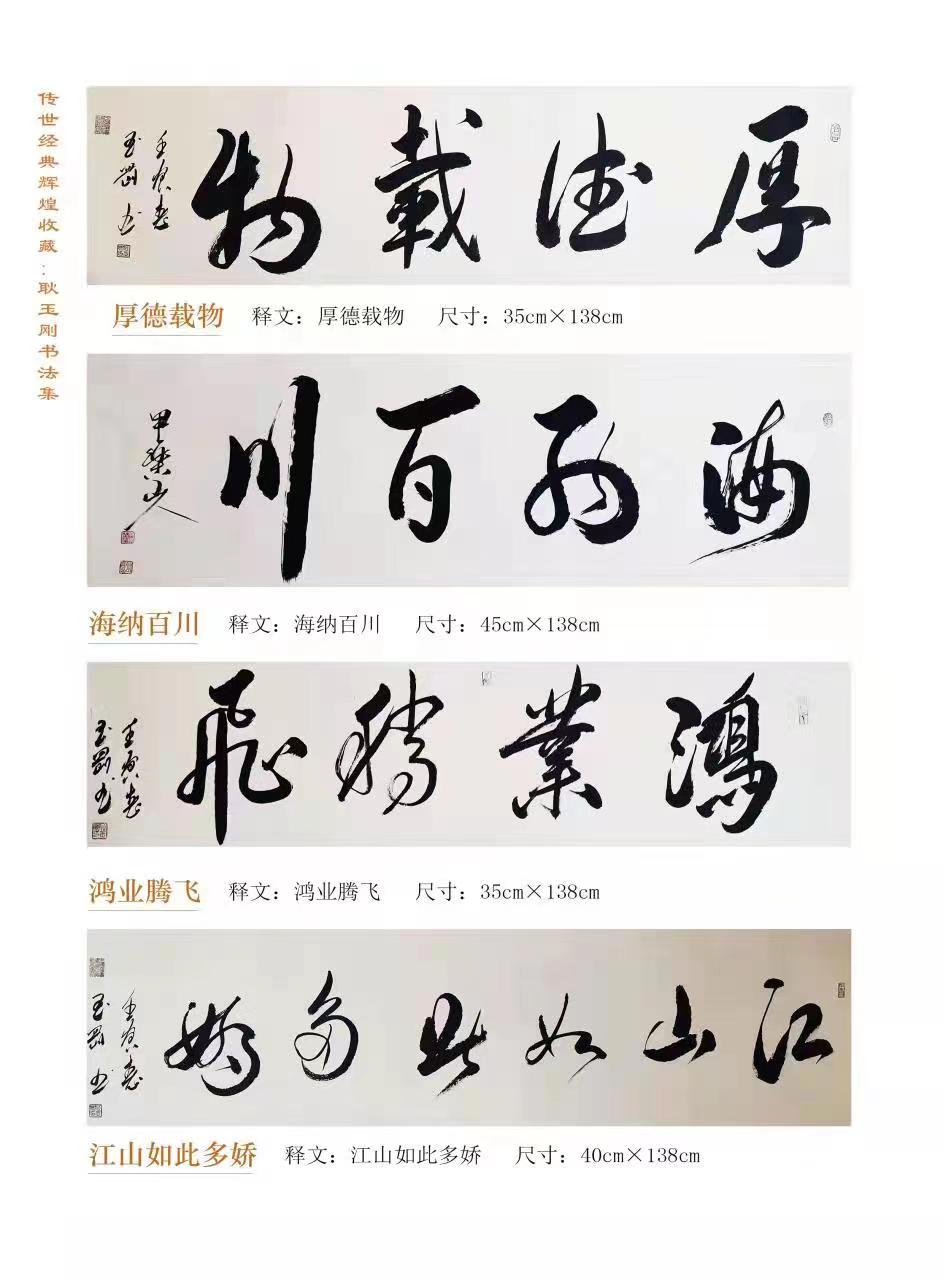 传世经典辉煌收藏：耿玉刚书法集
厚德载物
壬寅春
玉刚书
厚德载物 释文：厚德载物 尺寸：35cm×138cm
海纳百川
海纳百川 释文：海纳百川 尺寸：45cm×138cm
鸿业腾飞
壬寅春
玉刚书
鸿业腾飞 释文：鸿业腾飞 尺寸：35cm×138cm
江山如此多娇
壬寅春
玉刚书
江山如此多娇 释文：江山如此多娇 尺寸：40cm×138cm